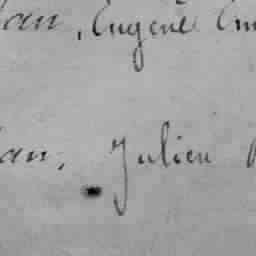 han, Eugène Em
han, Julien